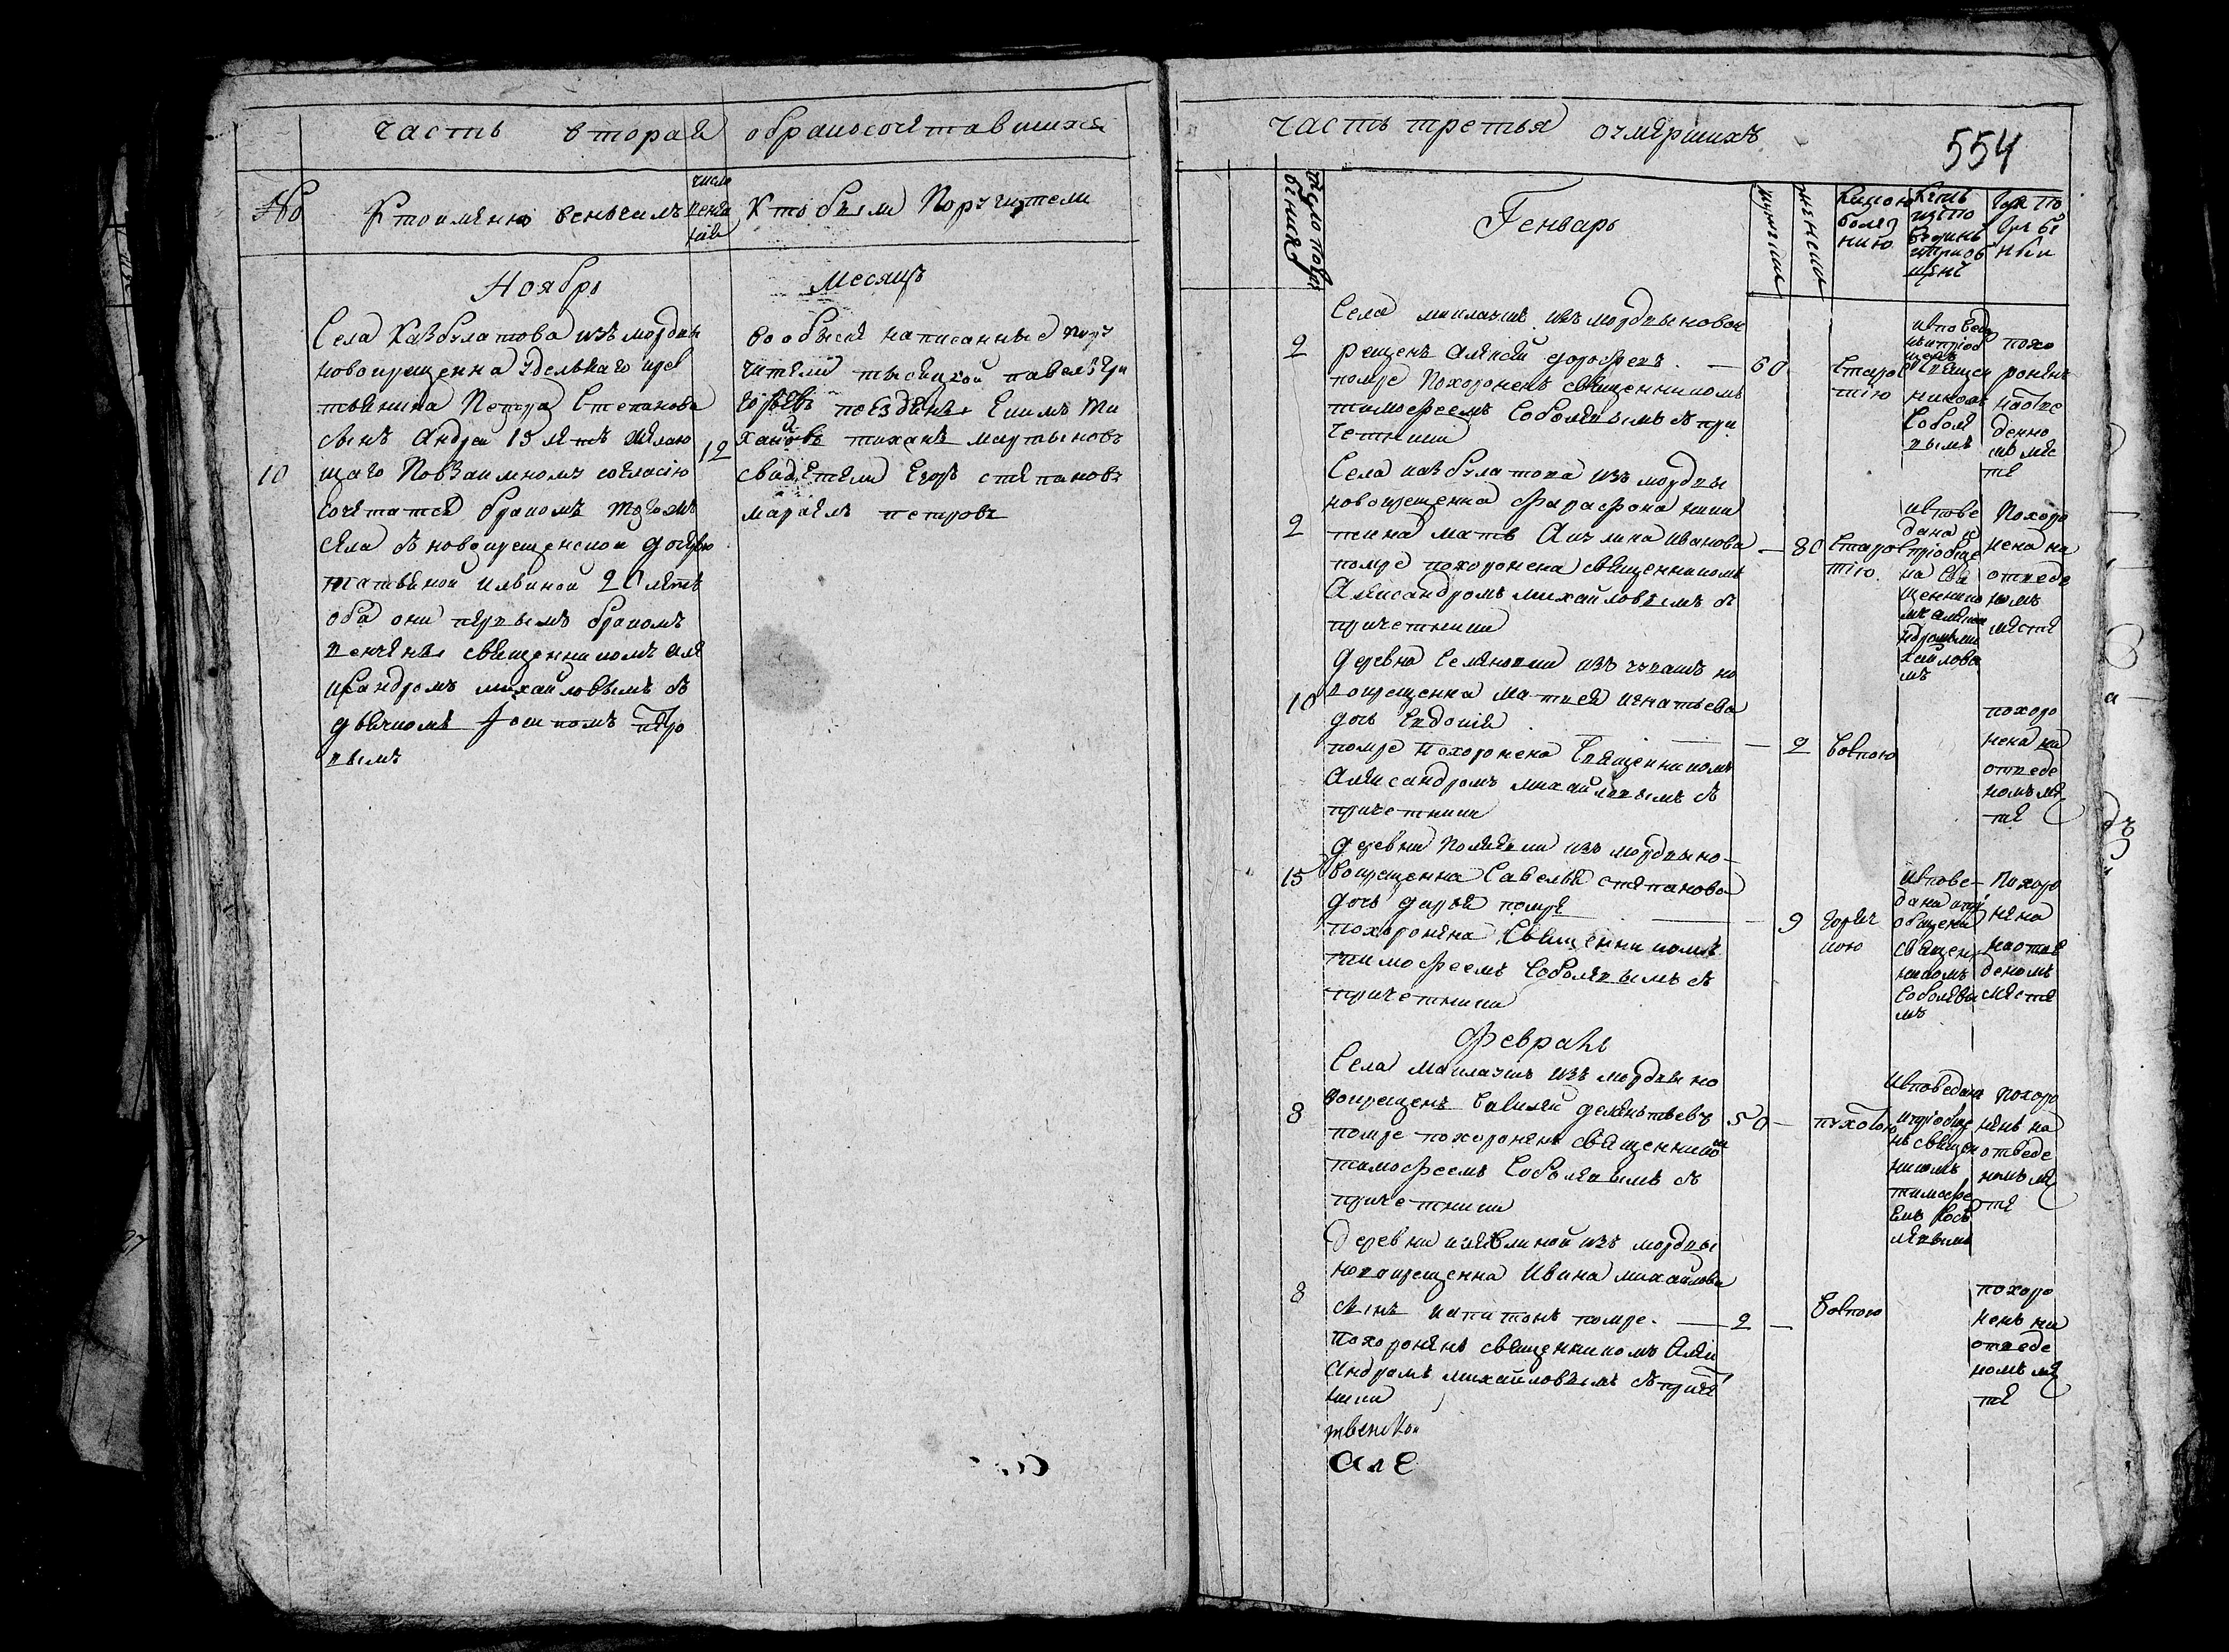 часть вторая обраносочѣтавшихся
№
Ктоимянно венчилъ
число
венча
ния
Кто были Поручители
Ноябрь Месяцъ
Села Казбулатова изъ мордвы
новокрещенна удельнаго кре
стьянина Петра Степанова
сынъ Андрей 15 лѣтъ желаю
10
щаго Повзаимному согласию
сочѣтатся бракомъ тогожъ
села съ новокрещенской дочерью
татьяной ильиной 20 лѣтъ
оба они первымъ бракомъ
венчаны священникомъ Але
ксандромъ михайловымъ съ
дьячкомъ Петро
вымъ
12
вообыскѣ написанные пору
чители тысяцкой павелъ Гри
горьевъ поезжаны Ти
хановъ тиханъ мартыновъ
свидѣтели Егоръ степановъ
петровъ
часть третья оумершихъ
554
число погре
бения
Генварь
мужески
женски
Какою
болез
нию
Кемъ
испо
веданъ
иприоб
щенъ
Где по
гребе
нъ
Села изъ мордвы новок
2
рещенъ Алексей дорофеевъ
60
помре Похороненъ священникомъ
тимофеемъ Соболевымъ съ при
четники
старос
тию
исповедо
приоб
щенъ
священ
никомъ
Собole
вымъ
похо
роненъ
наотве
денно
мъ мѣс
тѣ
Села казбулатова изъ мордвы
новокрещенна Фарафона ники
2
тина мать Акулина Иванова
80
помре похоронена священникомъ
Александромъ михайловымъ съ
причетники
старос
тию
испове
дана и
приобще
на свя
щеннико
мъ алекса
ндромъ ми
хайловы
мъ
Похоро
нена на
отведе
номъ
мѣстѣ
деревни Семенкина изъ чувашъ но
10
вокрещенна Матвея игнатьева
дочь Евдокия
2
помре похоронена священникомъ
Александромъ михайловымъ съ
причетники
воспою
похоро
нена на
отведе
номъ мѣс
тѣ
деревни изъ мордвы но-
15
вокрещенна Савелья степанова
дочь дарья помре
9
похоронена священникомъ
тимофеемъ Соболевымъ съ
причетники
горяч
кою
испове-
дана при
общена
священ
никомъ
Соболевы
мъ
Похоро
нена
наотве
деномъ
мѣстѣ
Февраль
Села изъ мордвы но
8
вокрещенъ деменьтьевъ
50
помре похороненъ священником
тимофеемъ Соболевымъ съ
причетники
исповеданъ
иприобще
нъ священ
никомъ
тимофе
емъ Собо
левымъ
Похоро
ненъ на
отведе
номъ мѣс
тѣ
деревни изъ мордвы
новокрещенна Ивана михайлова
8
сынъ капитонъ помре
2
похороненъ священникомъ Алек
сандромъ михайловымъ съ приче
тники
воспою
похоро
ненъ на
отведе
номъ мѣс
тѣ
Але